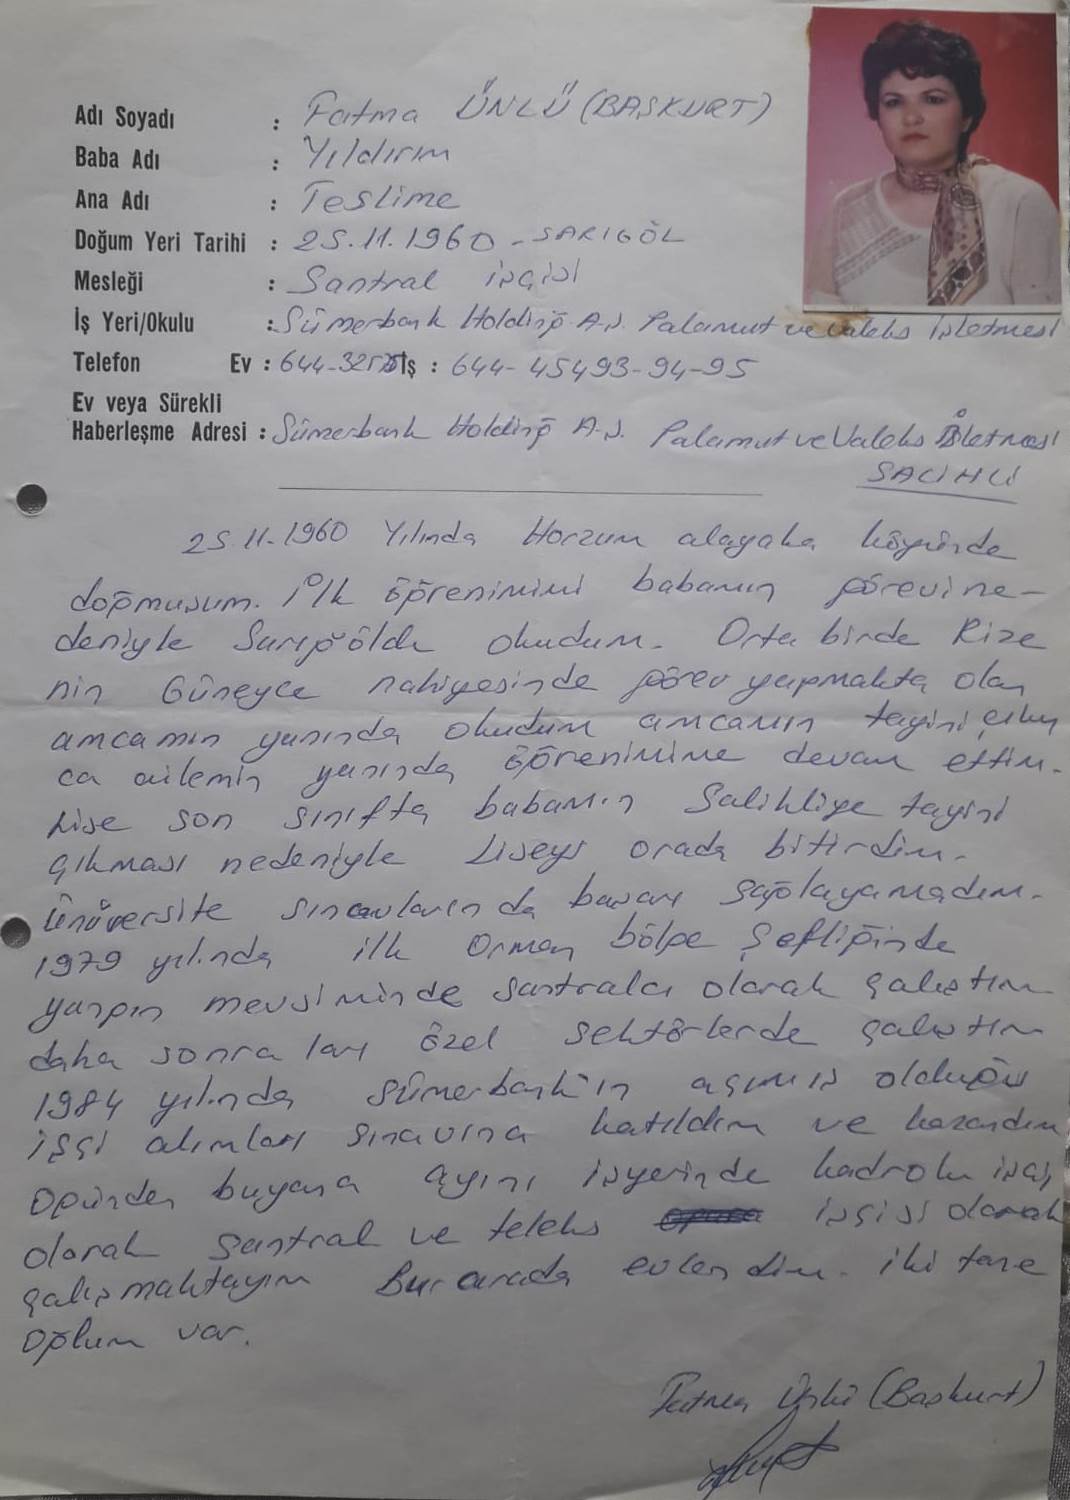 Adı Soyadı : Fatma ÜNLÜ (BAŞKURT)
Baba Adı : Yıldırım
Ana Adı : Teslime
Doğum Yeri Tarihi : 25.11.1960 - SARIGÖL
Mesleği : Santral işçisi
İş Yeri/Okulu : Sümerbank Holding A.Ş. Palamut ve Valeks İşletmesi
Telefon Ev : 644-325 İş : 644-45493-94-95
Ev veya Sürekli
Haberleşme Adresi : Sümerbank Holding A.Ş. Palamut ve Valeks İşletmesi
SALİHLİ
25.11.1960 Yılında Horzum alayaka köyünde
doğmuşum. İlk öğrenimimi babamın görevi ne-
deniyle Sarıgölde okudum. Orta birde Rize
nin Güneyce nahiyesinde görev yapmakta olan
amcamın yanında okudum amcamın tayini çıkın
ca ailemin yanında öğrenimime devam ettim.
Lise son sınıfta babamın Salihliye tayini
çıkması nedeniyle Liseyi orada bitirdim.
Ünüversite sınavlarında başarı sağlayamadım.
1979 yılında ilk Orman bölge Şefliğinde
yangın mevsiminde santralcı olarak çalıştım
daha sonraları özel sektörlerde çalıştım
1984 yılında Sümerbank'ın açmış olduğu
işçi alımları sınavına katıldım ve kazandım
Ogünden buyana ayını işyerinde kadrolu işçi
olarak Santral ve teleks işçisi olarak
çalışmaktayım Bu arada evlendim. iki tane
Oğlum var.
Fatma Ünlü (Başkurt)